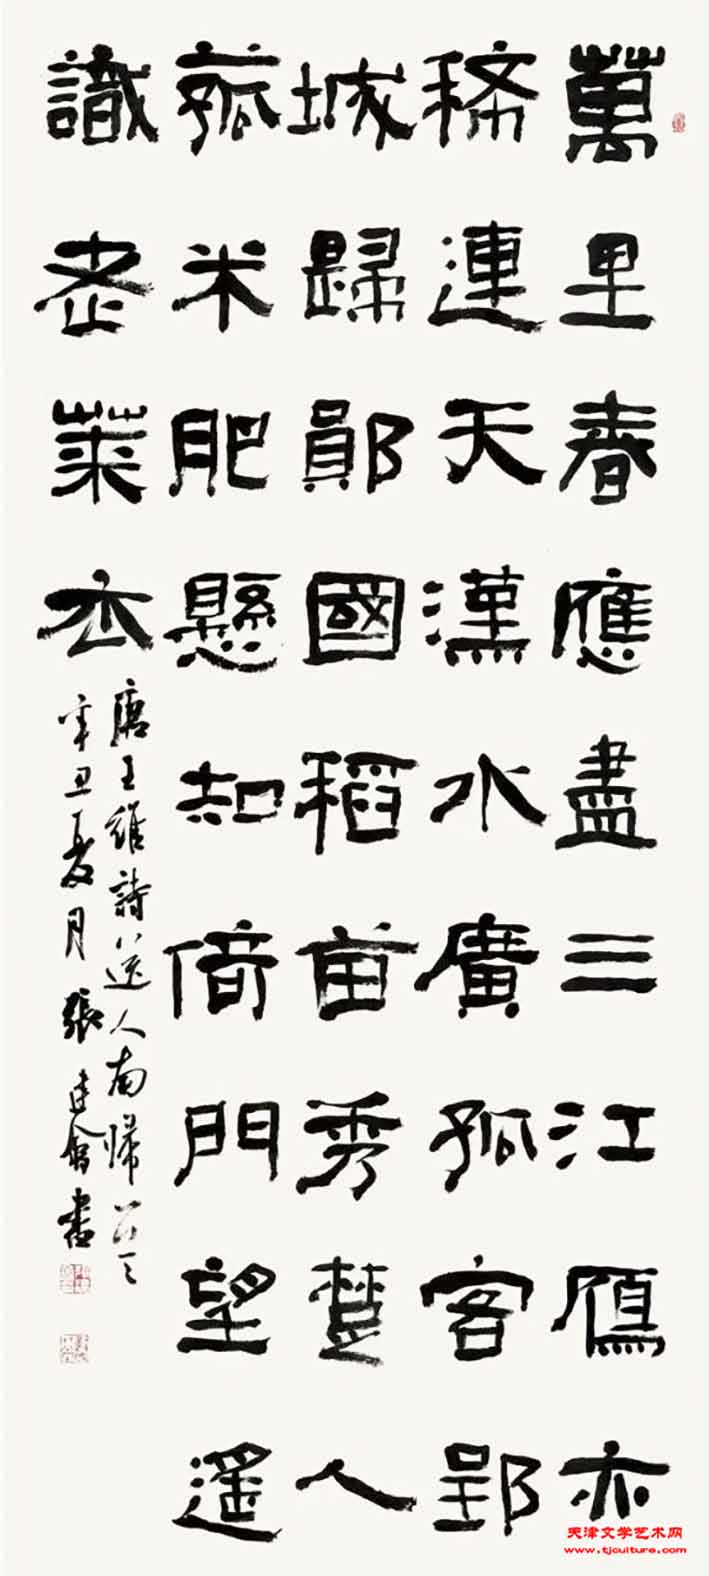 萬里春應盡三江鴈亦
稀連天漢水廣孤客郢
城歸鄖國稻苗秀楚人
菰米肥懸知倚門望遙
識老萊衣
唐王維詩送人南歸
辛丑夏月張建會書
天津文学艺术网
www.tjculture.com